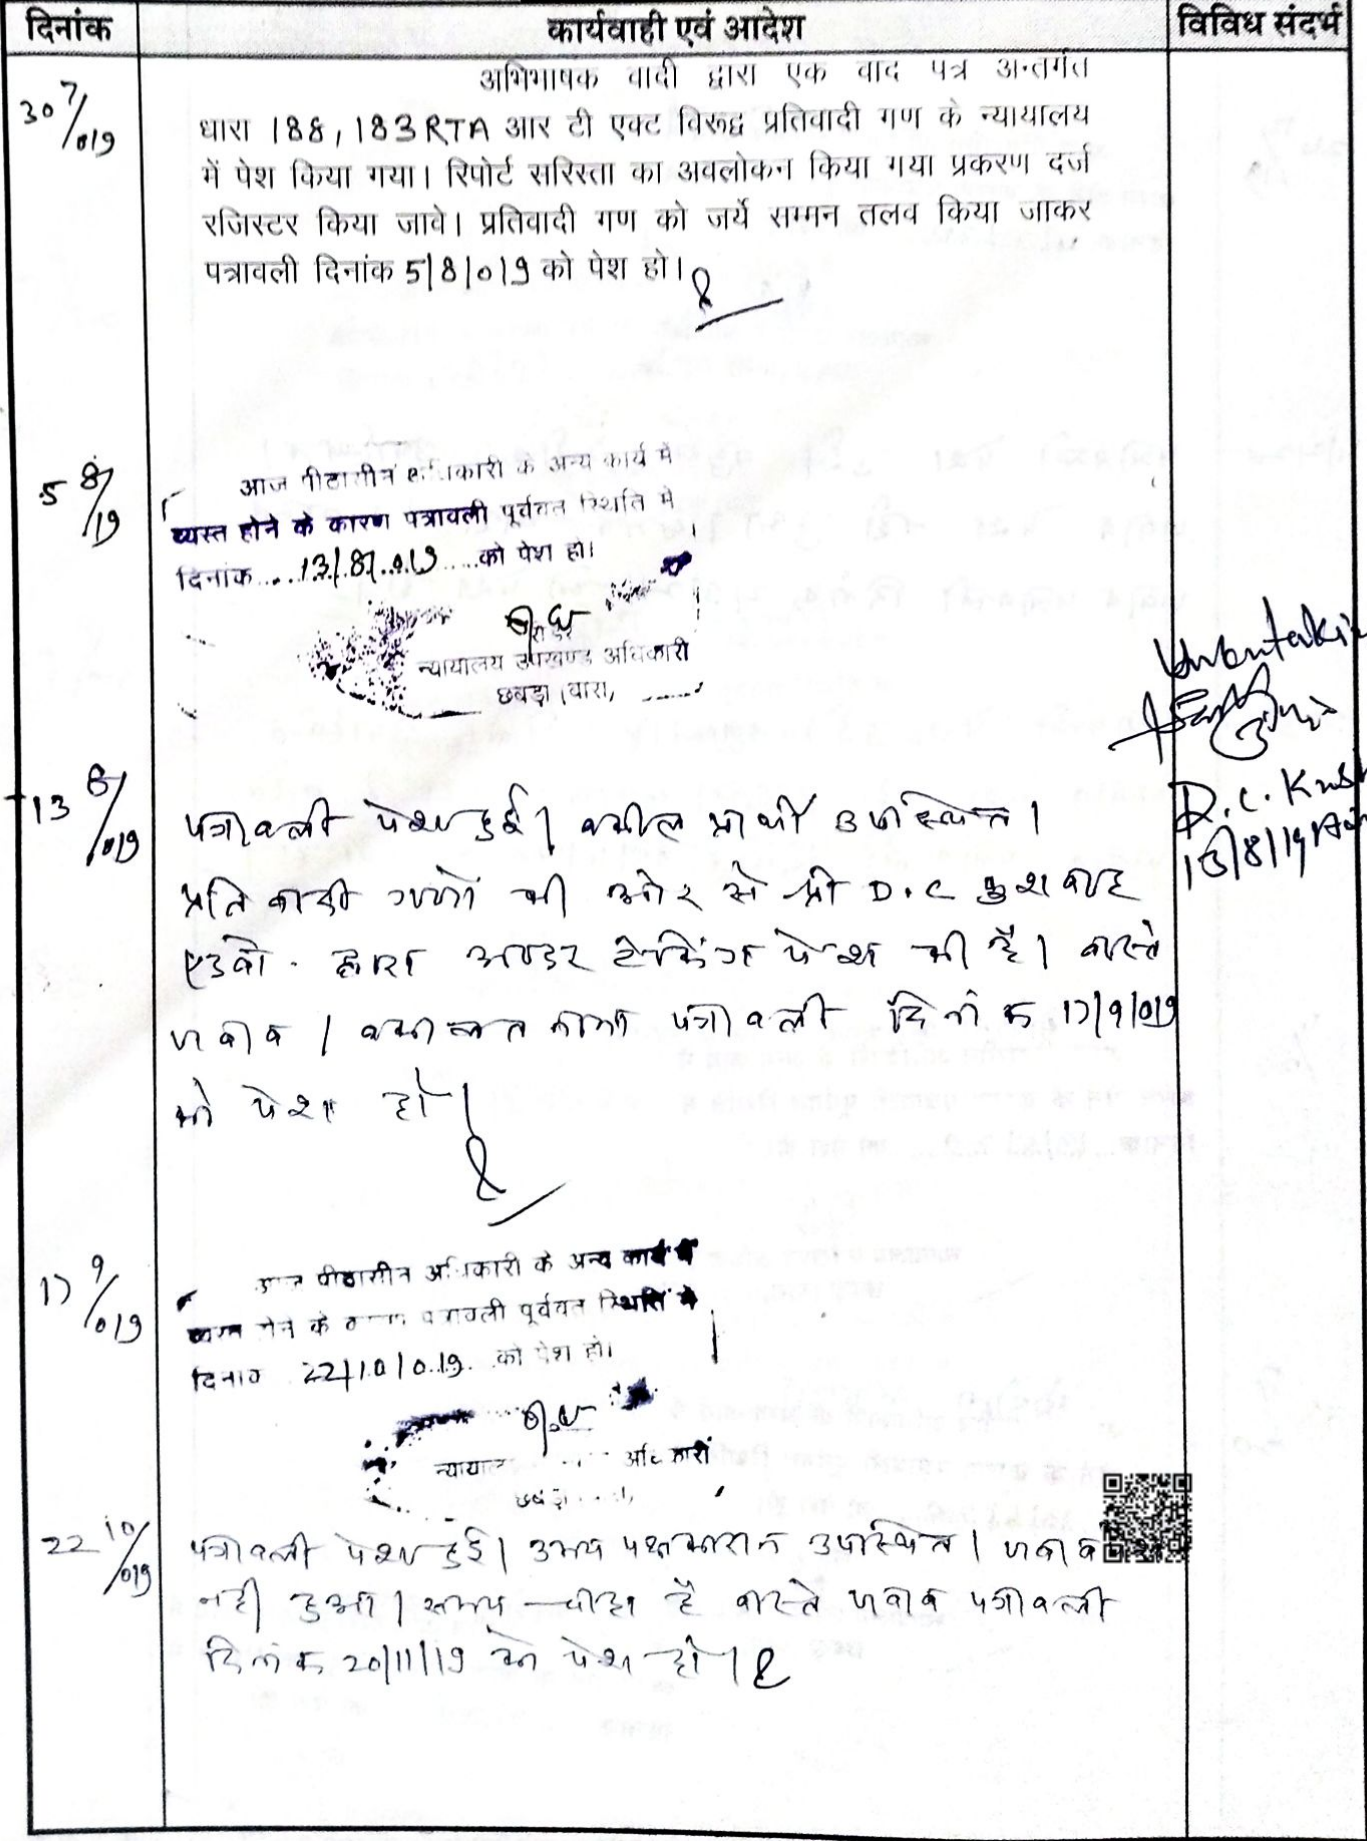 दिनांक कार्यवाही एवं आदेश विविध संदर्भ
30/7/019
अभिभाषक वादी द्वारा एक वाद पत्र अन्तर्गत
धारा 188, 183 RTA आर टी एक्ट विरूद्व प्रतिवादी गण के न्यायालय
में पेश किया गया। रिपोर्ट सरिस्ता का अवलोकन किया गया प्रकरण दर्ज
रजिस्टर किया जावे। प्रतिवादी गण को जर्ये सम्मन तलव किया जाकर
पत्रावली दिनांक 5/8/019 को पेश हो।
5/8/19
आज पीठासीन अधिकारी के अन्य कार्य में
व्यस्त होने के कारण पत्रावली पूर्ववत स्थिति में
दिनांक....13/8/019.....को पेश हो।
न्यायालय उपखण्ड अधिकारी
छबड़ा (बारा)
13/8/019
पत्रावली पेश हुई। वकील प्रार्थी उपस्थित।
प्रतिवादी गणों की ओर से श्री D.C कुशवाह
एडवो. द्वारा अण्डर टेकिंग पेश की है। वास्ते
जवाब / वकालत नामा पत्रावली दिनांक 17/9/019
को पेश हो।
Undertaking
D.C. Kush
13/8/19
17/9/019
आज पीठासीन अधिकारी के अन्य कार्य में
व्यस्त होने के कारण पत्रावली पूर्ववत स्थिति में
दिनांक 22/10/019 को पेश हो।
न्यायालय अधिकारी
छबड़ा
22/10/019
पत्रावली पेश हुई। उभय पक्षकारान उपस्थित। जवाब पेश
नही हुआ। समय चाहा है वास्ते जवाब पत्रावली
दिनांक 20/11/19 को पेश हो।